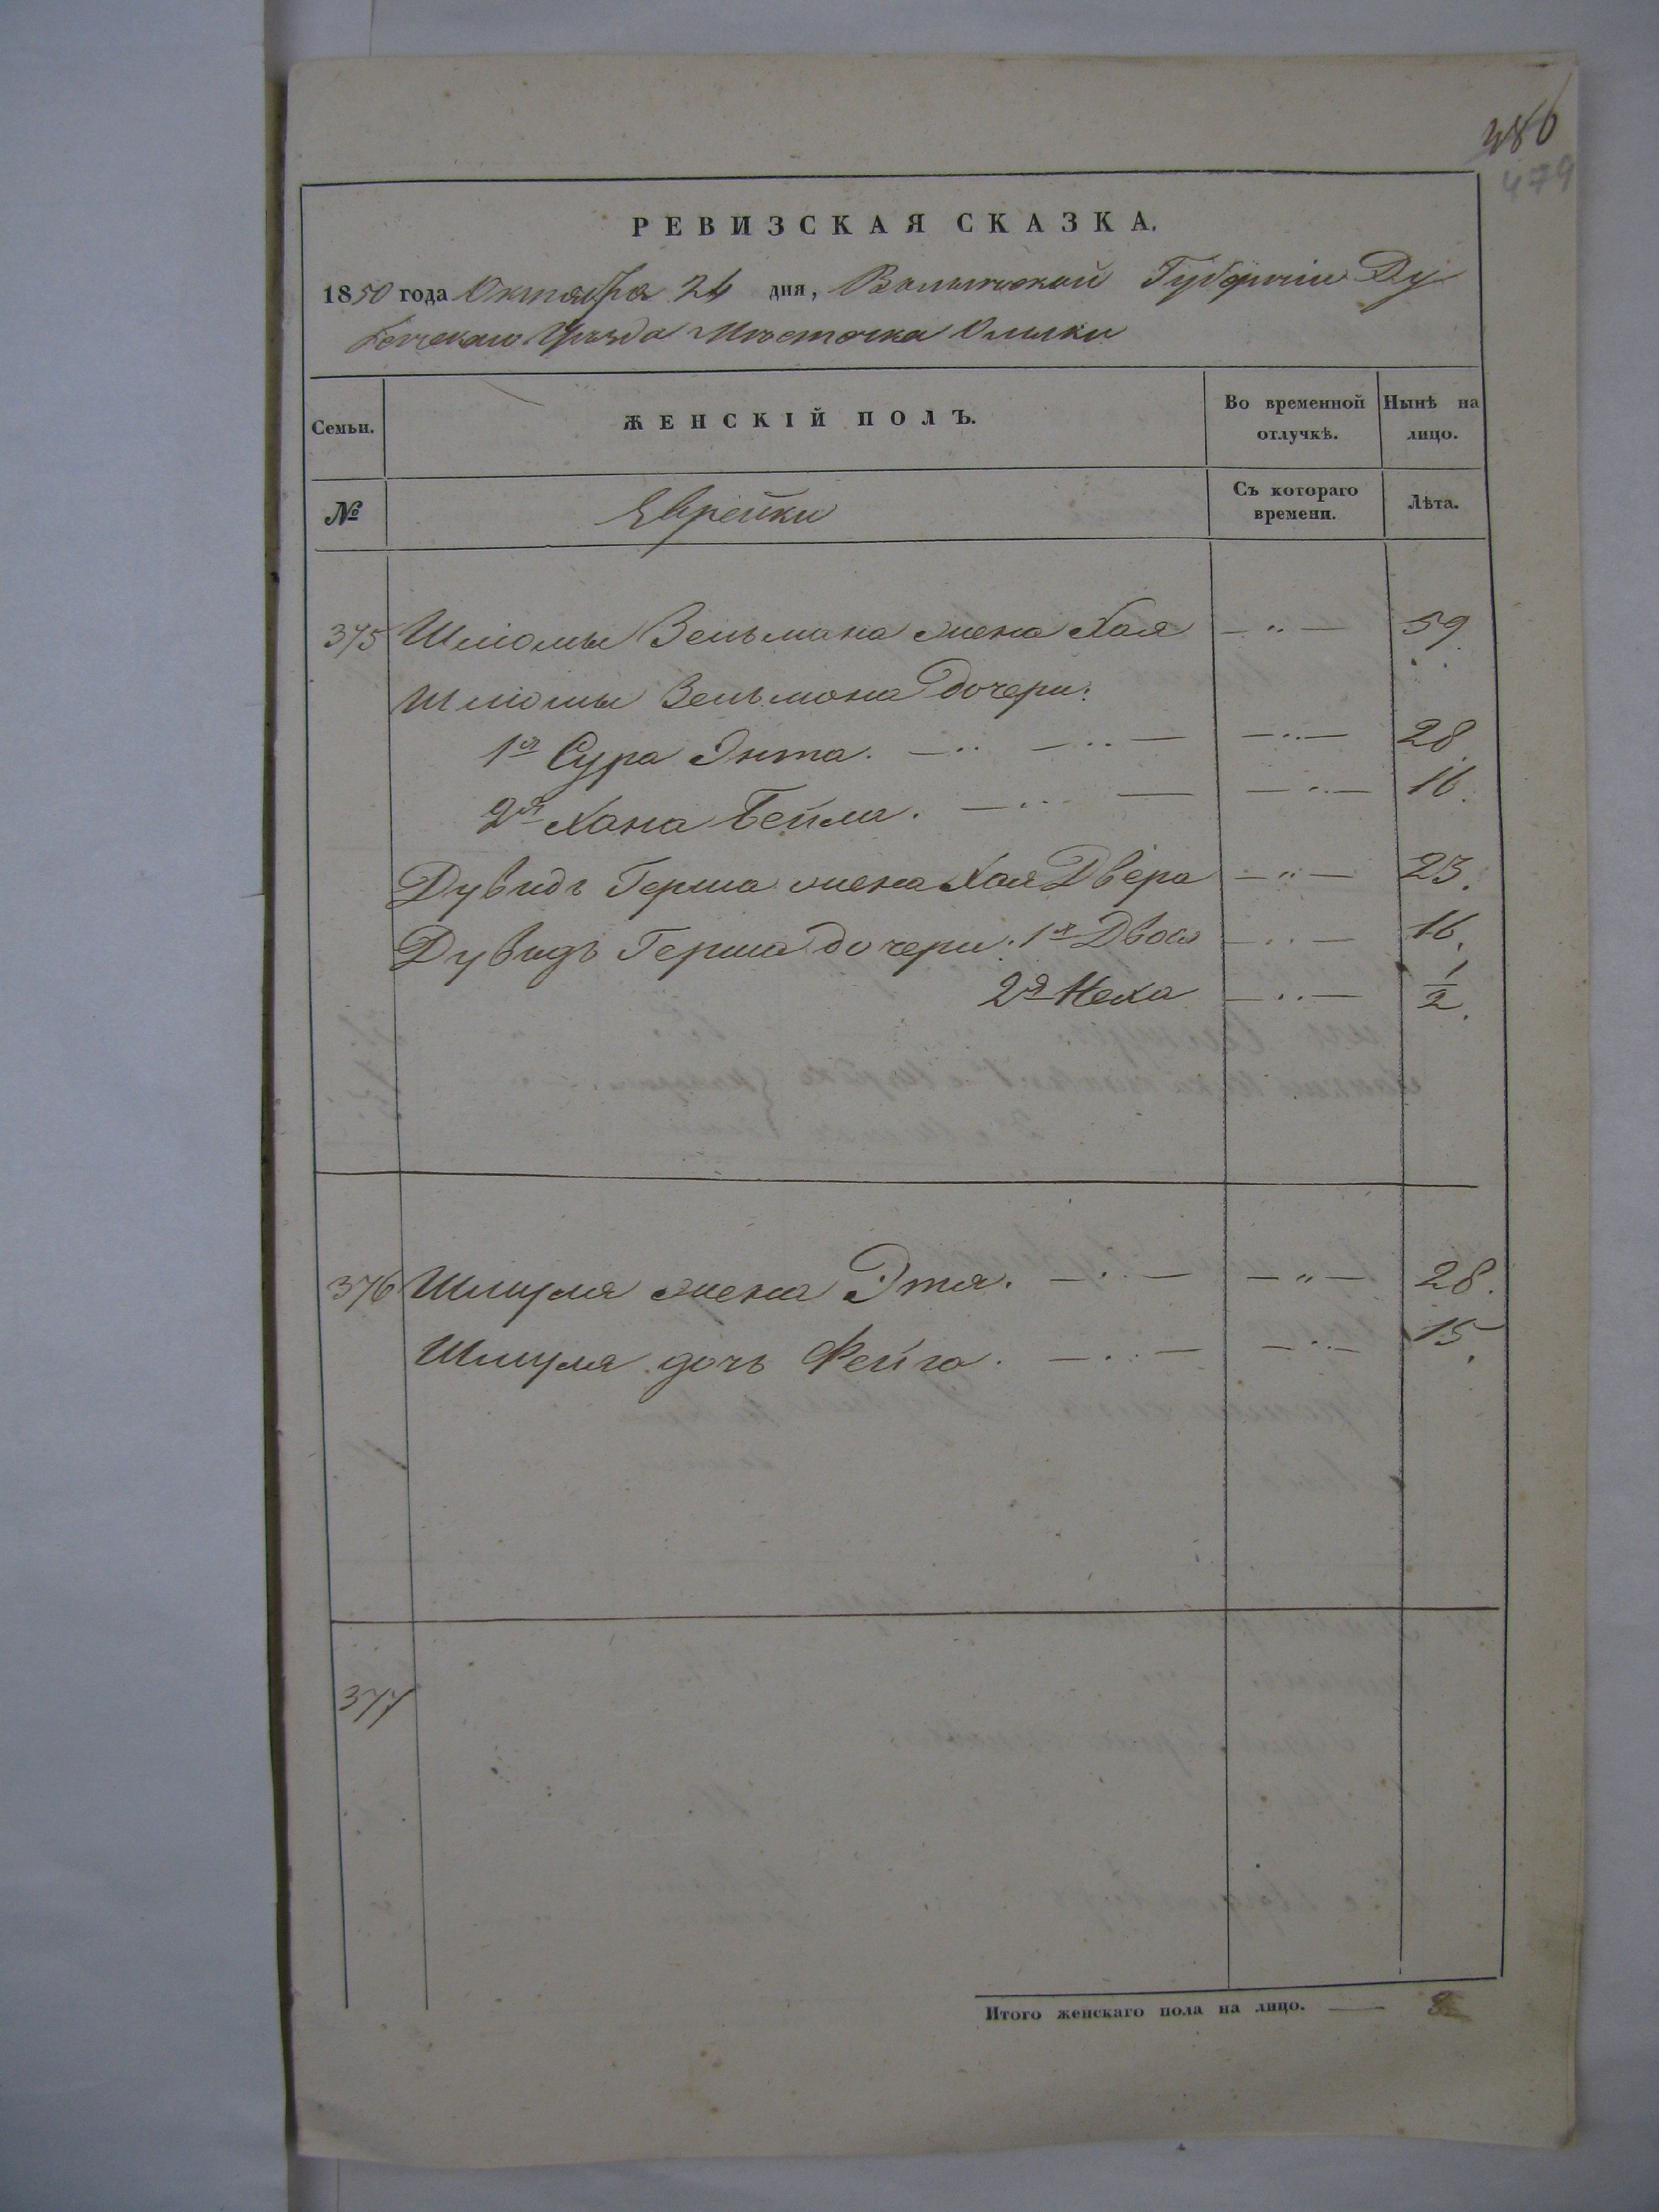 386
479
РЕВИЗСКАЯ СКАЗКА.
1850 года Октября 24 дня, Волынской Губерніи Ду
бенскаго Уѣзда Мѣстечка Олыки
Семьи.
ЖЕНСКІЙ ПОЛЪ.
Во временной отлучкѣ.
Нынѣ на лицо.
№
Еврейки
Съ котораго времени.
Лѣта.
375 Шліомы Зельмана жена Хая — „ — 59.
Шліомы Зельмана дочери:
1я Сура Энта. — „ — „ — — „ — 28.
2я Хана Бейла. — „ — — „ — 16.
Дувидъ Герша жена Хая Двера — „ — 23.
Дувидъ Герша дочери: 1я Двося — „ — 16.
2я Неха — „ — 1/2.
376 Шмуля жена Этя. — „ — — „ — 28.
Шмуля дочь Фейга. — „ — — „ — 15.
377
Итого женскаго пола на лицо. — 8